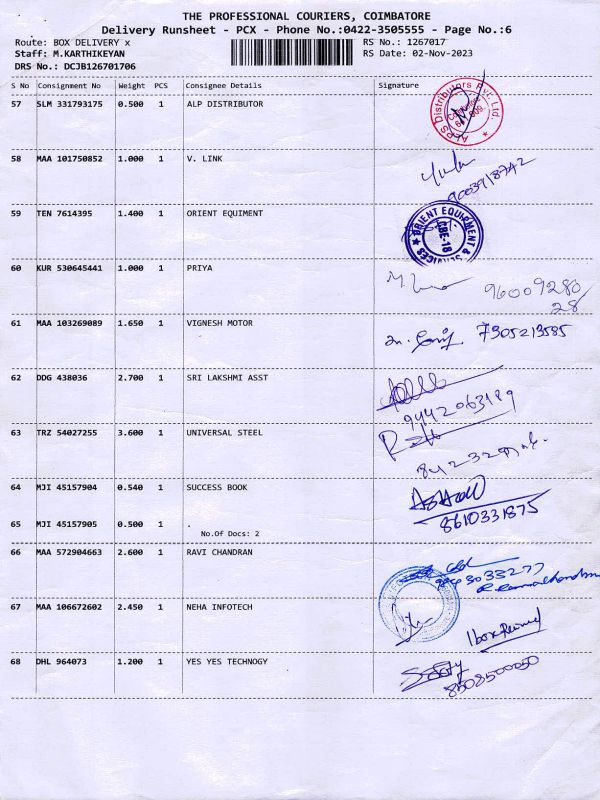 THE PROFESSIONAL COURIERS, COIMBATORE
Delivery Runsheet - PCX - Phone No.:0422-3505555 - Page No.:6
Route: BOX DELIVERY x RS No.: 1267017
Staff: M.KARTHIKEYAN RS Date: 02-Nov-2023
DRS No.: DCJB126701706
S No Consignment No Weight PCS Consignee Details Signature
57 SLM 331793175 0.500 1 ALP DISTRIBUTOR
58 MAA 101750852 1.000 1 V. LINK
9003918742
59 TEN 7614395 1.400 1 ORIENT EQUIMENT
ORIENT EQUIPMENT & SERVICES
CBE-18
60 KUR 530645441 1.000 1 PRIYA
96009280
28
61 MAA 103269089 1.650 1 VIGNESH MOTOR
7305213585
62 DDG 438036 2.700 1 SRI LAKSHMI ASST
9442063189
63 TRZ 54027255 3.600 1 UNIVERSAL STEEL
64 MJI 45157904 0.540 1 SUCCESS BOOK
65 MJI 45157905 0.500 1 .
8610331875
No.Of Docs: 2
66 MAA 572904663 2.600 1 RAVI CHANDRAN
67 MAA 106672602 2.450 1 NEHA INFOTECH
1box Received
68 DHL 964073 1.200 1 YES YES TECHNOGY
8508500050